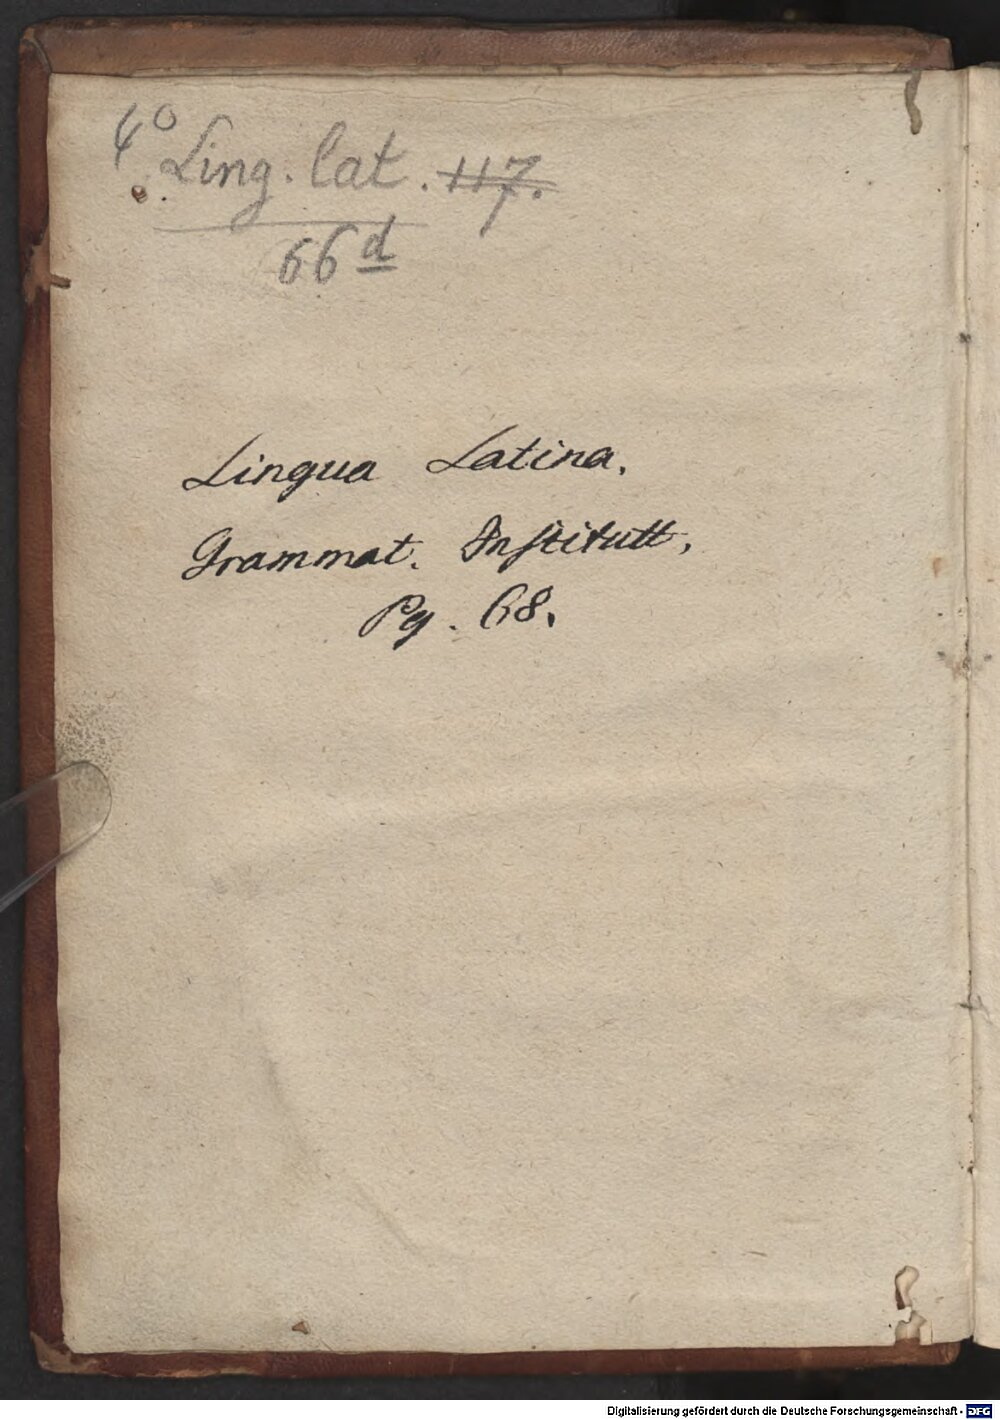 4° Ling. lat. 117.
66 d
Lingua Latina.
Grammat. Institutt.
Pg. 68.
Digitalisierung gefördert durch die Deutsche Forschungsgemeinschaft - DFG